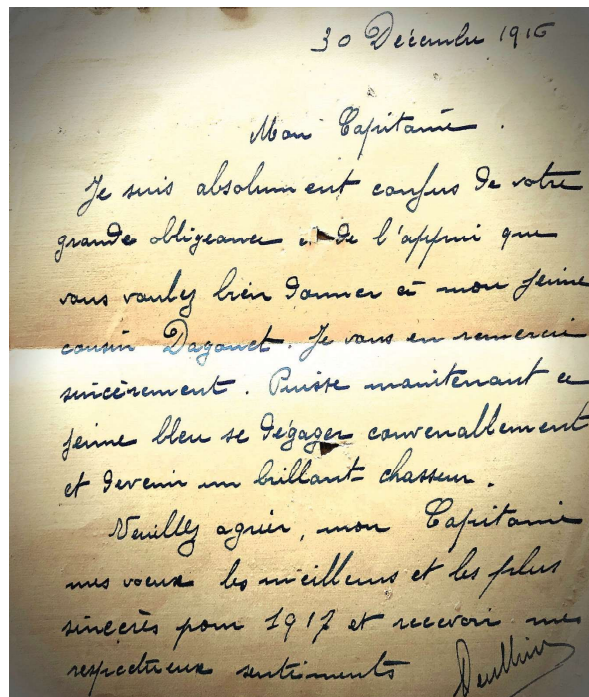 30 Décembre 1916
Mon Capitaine.
Je suis absolument confus de votre
grande obligeance et de l'appui que
vous voulez bien donner à mon jeune
cousin Dagonet. Je vous en remercie
sincèrement. Puisse maintenant ce
jeune bleu se dégager convenablement
et devenir un brillant chasseur.
Veuillez agréer, mon Capitaine
mes voeux les meilleurs et les plus
sincères pour 1917 et recevoir mes
respectueux sentiments
Deullin